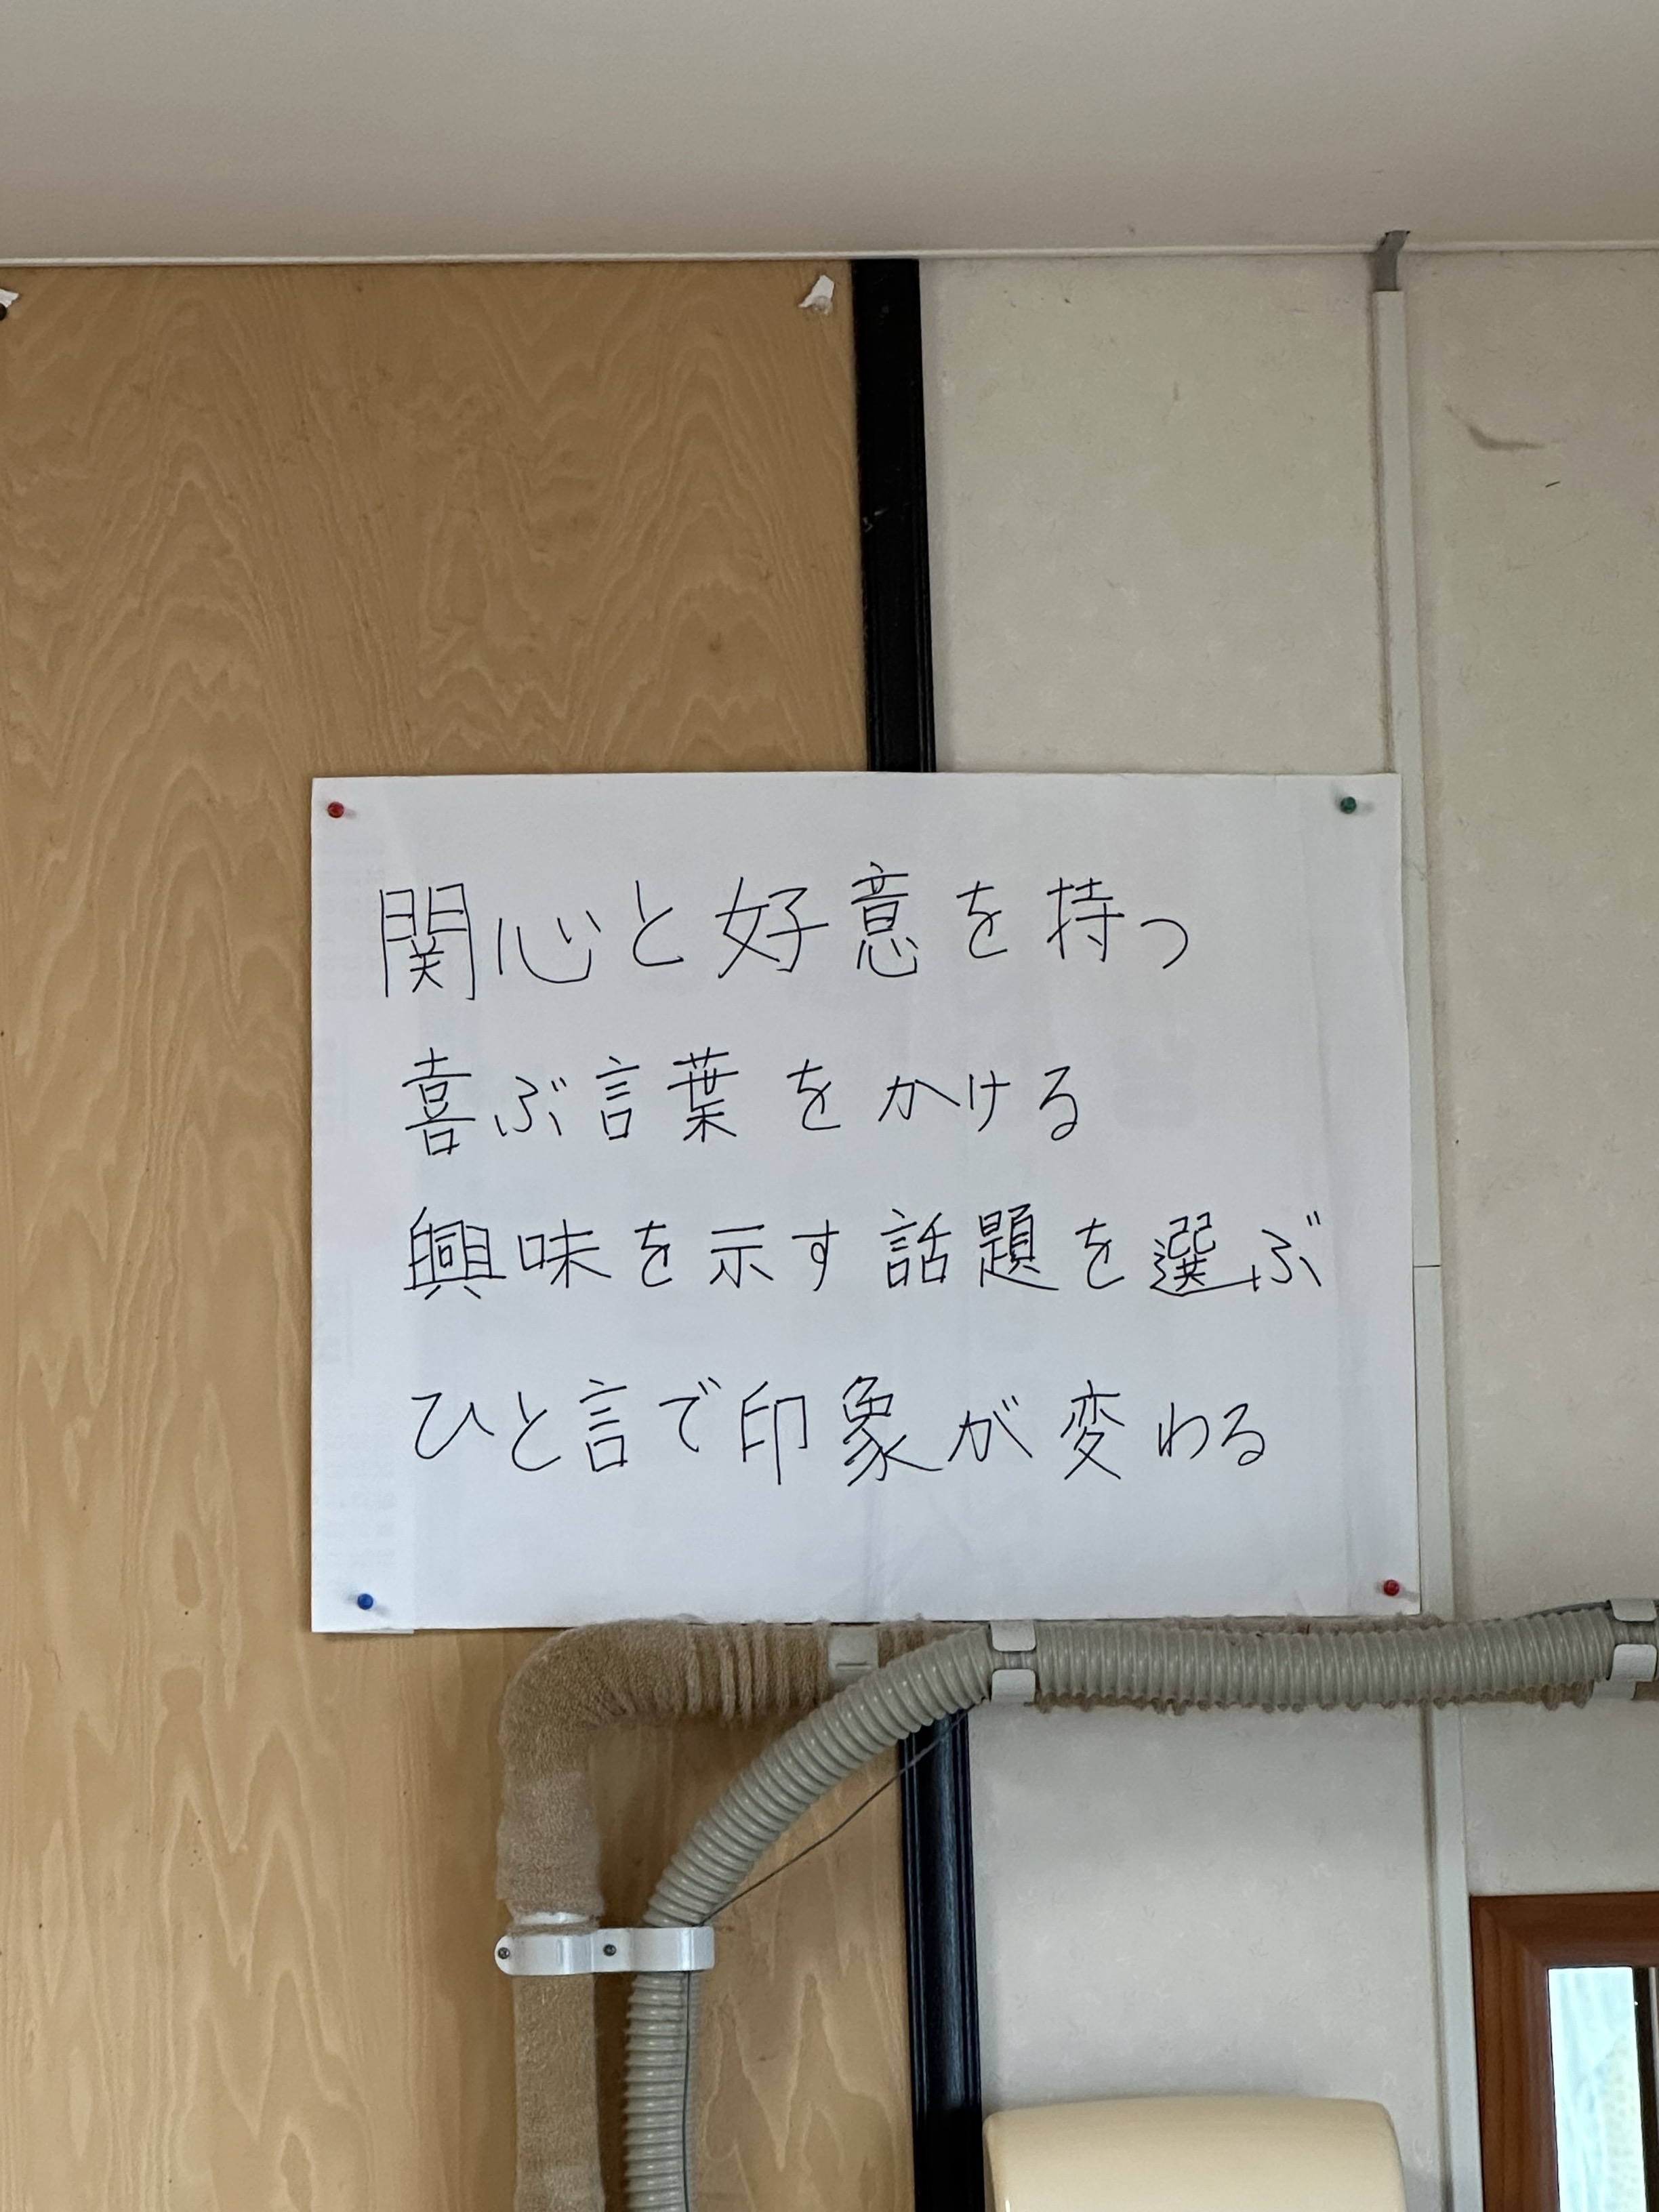 関心と好意を持つ
喜ぶ言葉をかける
興味を示す話題を選ぶ
ひと言で印象が変わる